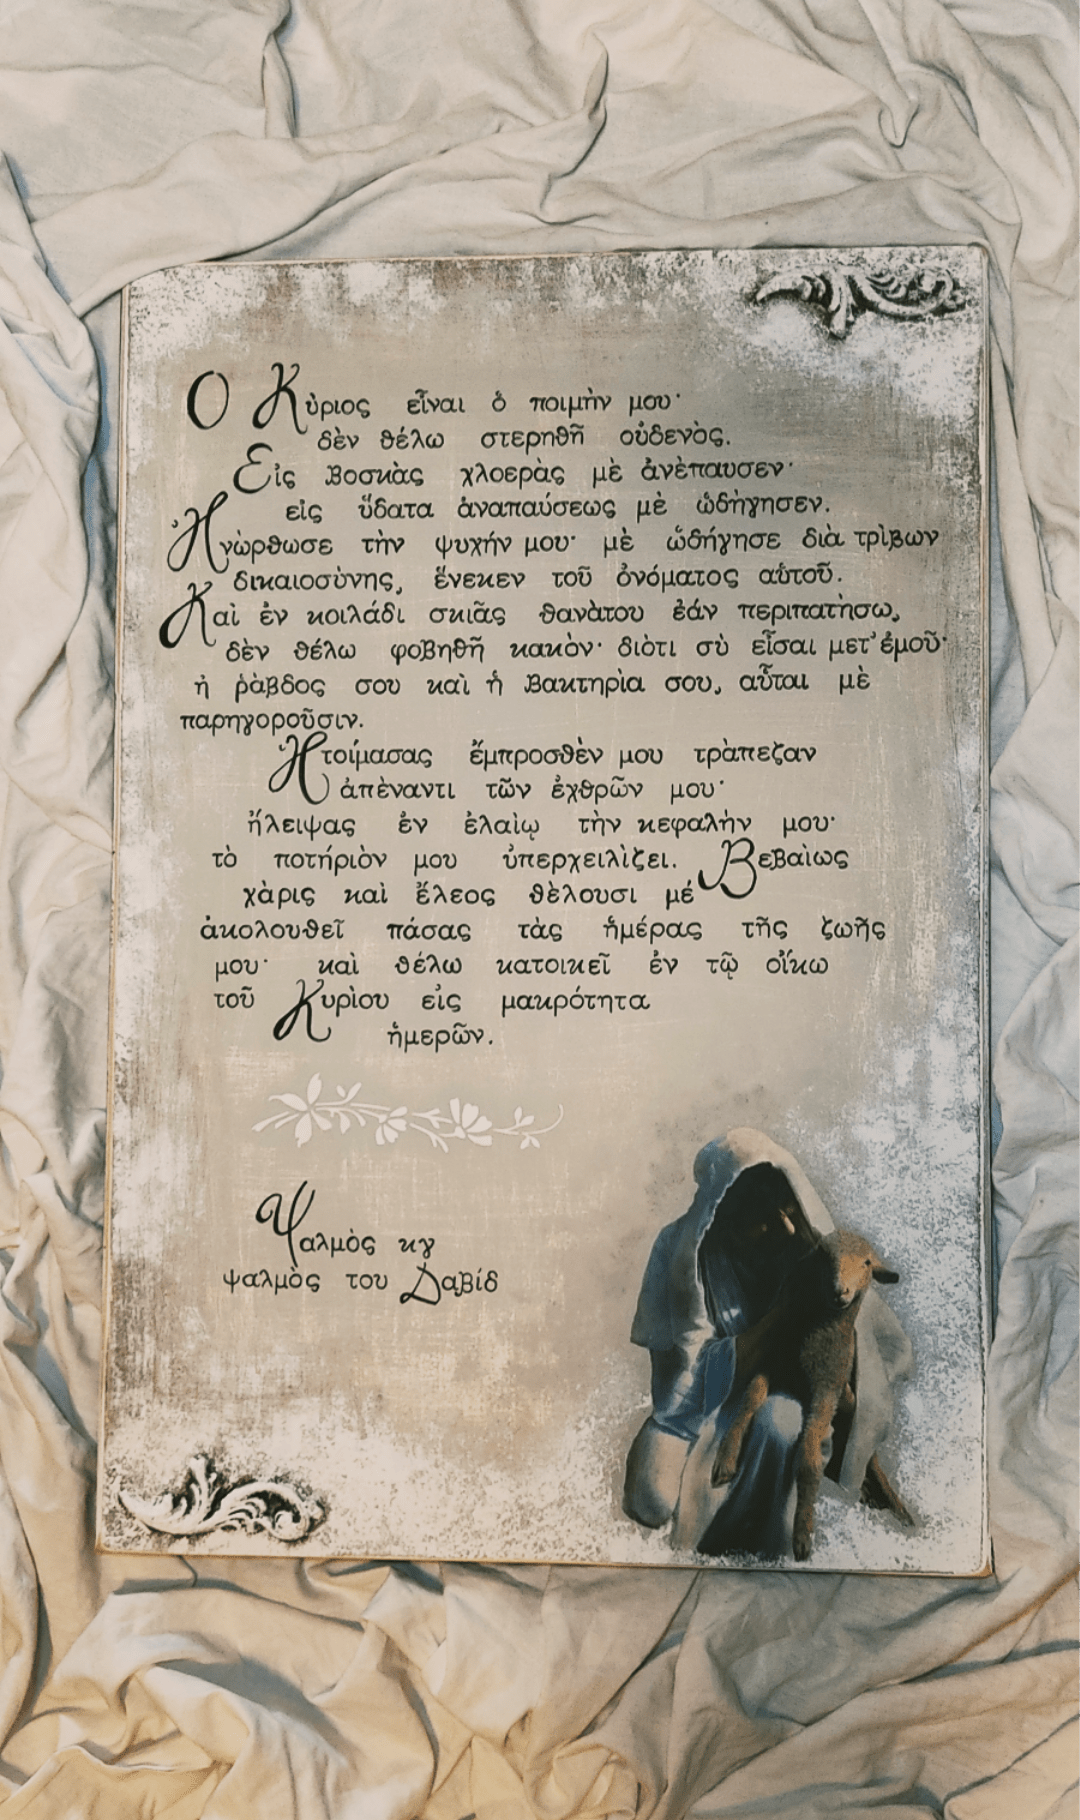 Ο Κὺριος εἶναι ὁ ποιμὴν μου·
δὲν θέλω στερηθῆ οὐδενὸς.
Εἰς βοσκὰς χλοερὰς μὲ ἀνὲπαυσεν·
εἰς ὕδατα ἀναπαύσεως μὲ ὡδὴγησεν.
Ἠνὼρθωσε τὴν ψυχήν μου· μὲ ὥδήγησε διὰ τρὶβων
δικαιοσὺνης, ἕνεκεν τοῦ ὀνόματος αὑτοῦ.
Καὶ ἐν κοιλάδι σκιᾶς θανὰτου ἐάν περιπατὴσω,
δὲν θέλω φοβηθῆ κακὸν· διὸτι σὺ εἶσαι μετ' ἐμοῦ·
ἡ ῥὰβδος σου καὶ ἡ βακτηρὶα σου, αὗται μὲ
παρηγοροῦσιν.
Ἡτοίμασας ἔμπροσθὲν μου τρὰπεζαν
ἀπὲναντι τῶν ἐχθρῶν μου·
ἤλειψας ἐν ἐλαὶῳ τὴν κεφαλήν μου·
τὸ ποτήριὸν μου ὑπερχειλὶζει. Βεβαὶως
χὰρις καὶ ἔλεος θὲλουσι μέ
ἀκολουθεῖ πάσας τὰς ἡμέρας τῆς ζωῆς
μου· καὶ θέλω κατοικεῖ ἐν τῷ οἴκω
τοῦ Κυρὶου εἰς μακρότητα
ἡμερῶν.
Ψαλμὸς κγ
ψαλμὸς του Δαβίδ